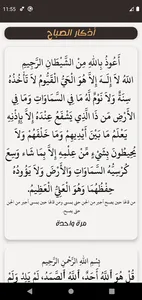 11:55
أذكار الصباح
أَعُوذُ بِاللهِ مِنْ الشَّيْطَانِ الرَّجِيمِ
اللهُ لاَ إِلَهَ إِلاَّ هُوَ الْحَيُّ الْقَيُّومُ لاَ تَأْخُذُهُ
سِنَةٌ وَلاَ نَوْمٌ لَّهُ مَا فِي السَّمَاوَاتِ وَمَا فِي
الأَرْضِ مَن ذَا الَّذِي يَشْفَعُ عِنْدَهُ إِلاَّ بِإِذْنِهِ
يَعْلَمُ مَا بَيْنَ أَيْدِيهِمْ وَمَا خَلْفَهُمْ وَلاَ
يُحِيطُونَ بِشَيْءٍ مِّنْ عِلْمِهِ إِلاَّ بِمَا شَاء وَسِعَ
كُرْسِيُّهُ السَّمَاوَاتِ وَالأَرْضَ وَلاَ يَؤُودُهُ
حِفْظُهُمَا وَهُوَ الْعَلِيُّ الْعَظِيمُ.
من قالها حين يصبح أجير من الجن حتى يمسى ومن قالها حين يمسى أجير من الجن
حتى يصبح
مرة واحدة
بِسْمِ اللهِ الرَّحْمنِ الرَّحِيمِ
قُلْ هُوَ اللهُ أَحَدٌ، اللهُ الصَّمَدُ، لَمْ يَلِدْ وَلَمْ